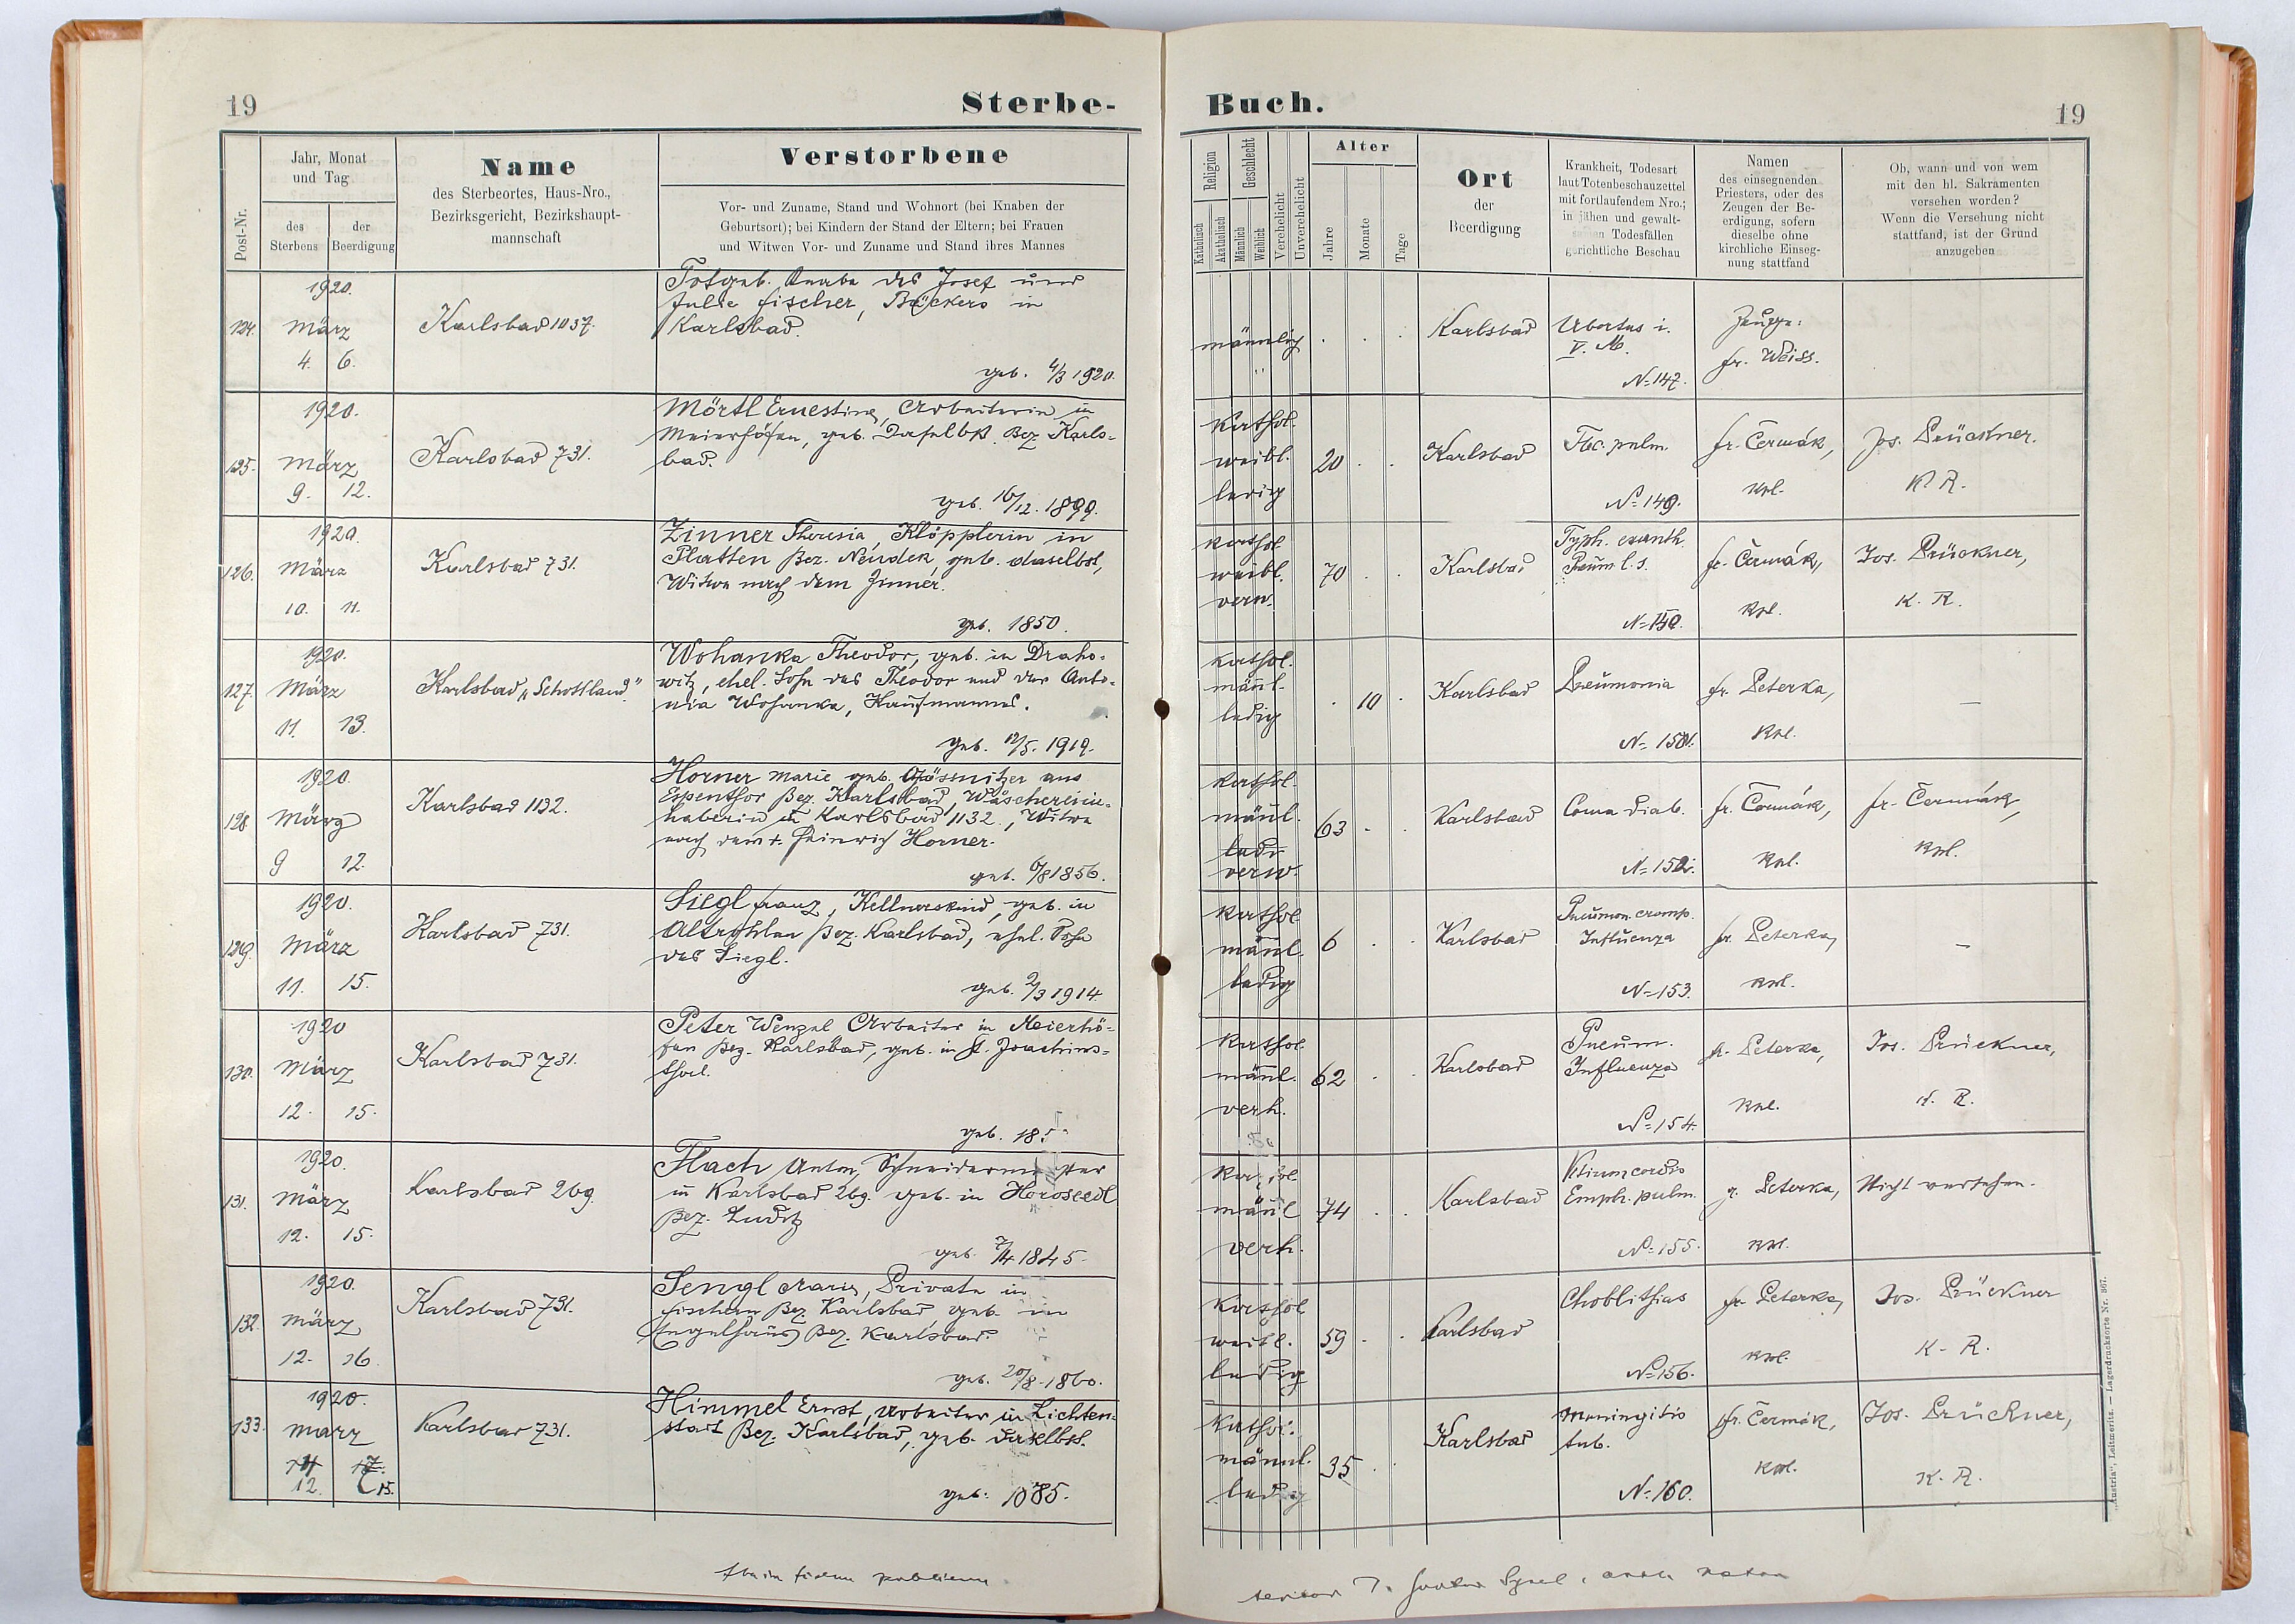 19
Sterbe-
Post-Nr.
Jahr, Monat
und Tag
des
Sterbens
der
Beerdigung
Name
des Sterbeortes, Haus-Nro.,
Bezirksgericht, Bezirkshaupt-
mannschaft
Verstorbene
Vor- und Zuname, Stand und Wohnort (bei Knaben der
Geburtsort); bei Kindern der Stand der Eltern; bei Frauen
und Witwen Vor- und Zuname und Stand ihres Mannes
1920.
124. März
4. 6.
Karlsbad 1037.
Totgeb. Knabe des Josef und
Julie Fischer, Bäckers in
Karlsbad.
geb. 4/3 1920.
1920.
125. März
9. 12.
Karlsbad 731.
Mörtl Ernestine, Arbeiterin in
Meierhöfen, geb. daselbst Bez Karls-
bad.
geb. 16/12. 1899.
1920.
126. März
10. 11.
Karlsbad 731.
Zinner Theresia, Klöpplerin in
Platten Bez. Neudek, geb. daselbst,
Witwe nach dem Zinner.
geb. 1850.
1920.
127. März
11. 13.
Karlsbad „Schottland."
Wohanka Theodor, geb. in Draho-
witz, ehel. Sohn des Theodor und der Anto-
nia Wohanka, Kaufmannes.
geb. 12/5. 1919.
1920
128 März
9 12.
Karlsbad 1132.
Horner Marie geb. aus
Espenthor Bez. Karlsbad, Wäschereiin-
haberin in Karlsbad 1132., Witwe
nach dem †. Heinrich Horner.
geb. 6/8 1856.
1920.
129. März
11. 15.
Karlsbad 731.
Siegl Franz, Kellnerskind, geb. in
Altrohlau Bez. Karlsbad, ehel. Sohn
des Siegl.
geb. 2/3 1914
1920
130. März
12. 15.
Karlsbad 731.
Peter Wenzel Arbeiter in Meierhö-
fen Bez. Karlsbad, geb. in St. Joachims-
thal.
geb.
1920.
131. März
12. 15.
Karlsbad 269.
Flach Anton, Schneidermeister
in Karlsbad 269. geb. in Horoseedl
Bez. Luditz
geb. 7/4 1845.
1920.
132. März
12. 16.
Karlsbad 731.
Sengl Marie, Private in
Fischern Bez Karlsbad geb. in
Engelhaus Bez. Karlsbad.
geb. 20/8. 1860.
1920.
133. März
12. 15.
Karlsbad 731.
Himmel Ernst, Arbeiter in Lichten-
stadt Bez. Karlsbad, geb. daselbst.
geb. 1885.
Buch.
19
Religion
Katholisch
Akatholisch
Geschlecht
Männlich
Weiblich
Verehelicht
Unverehelicht
Alter
Jahre
Monate
Tage
Ort
der
Beerdigung
Krankheit, Todesart
laut Totenbeschauzettel
mit fortlaufendem Nro.;
in jähen und gewalt-
samen Todesfällen
gerichtliche Beschau
Namen
des einsegnenden
Priesters, oder des
Zeugen der Be-
erdigung, sofern
dieselbe ohne
kirchliche Einseg-
nung stattfand
Ob, wann und von wem
mit den hl. Sakramenten
versehen worden?
Wenn die Versehung nicht
stattfand, ist der Grund
anzugeben
männlich
Karlsbad
Abortus i.
V. M.
N=147.
Zeuge:
Fr. Weiss.
kathol.
weibl.
ledig
20
Karlsbad
Tbc. pulm.
N=149.
Fr. Čermák,
Kpl.
Jos. Prückner.
K. R.
kathol
weibl.
verw.
70
Karlsbad
Typh. exanth.
Pneum l. s.
N=150.
Fr. Čermák,
Kpl.
Jos. Prückner,
K. R.
kathol.
männl.
ledig
10
Karlsbad
Pneumonia
N=151.
Fr. Peterka,
Kpl.
—
kathol.
männl.
ledi
verw.
63
Karlsbad
Coma diab.
N=152.
Fr. Čermák,
Kpl.
Fr. Čermák,
Kpl.
kathol
männl.
ledig
6
Karlsbad
Pneumon. croup.
Influenza
N=153.
Fr. Peterka,
Kpl.
—
kathol
männl.
verh.
62
Karlsbad
Pneum.
Influenza
N=154.
Fr. Peterka,
Kpl.
Jos. Prückner,
K. R.
kathol
männl
verh.
74
Karlsbad
Vitium cordis
Emph. pulm.
N=155.
Fr. Peterka,
Kpl.
Nicht versehen.
kathol
weibl.
ledig
59
Karlsbad
N=156.
Fr. Peterka,
Kpl.
Jos. Prückner
K. R.
kathol.
männl.
ledig
35
Karlsbad
Meningitis
tub.
N=160.
Fr. Čermák,
Kpl.
Jos. Prückner,
K. R.
„Austria", Leitmeritz. — Lagerdrucksorte Nr. 867.